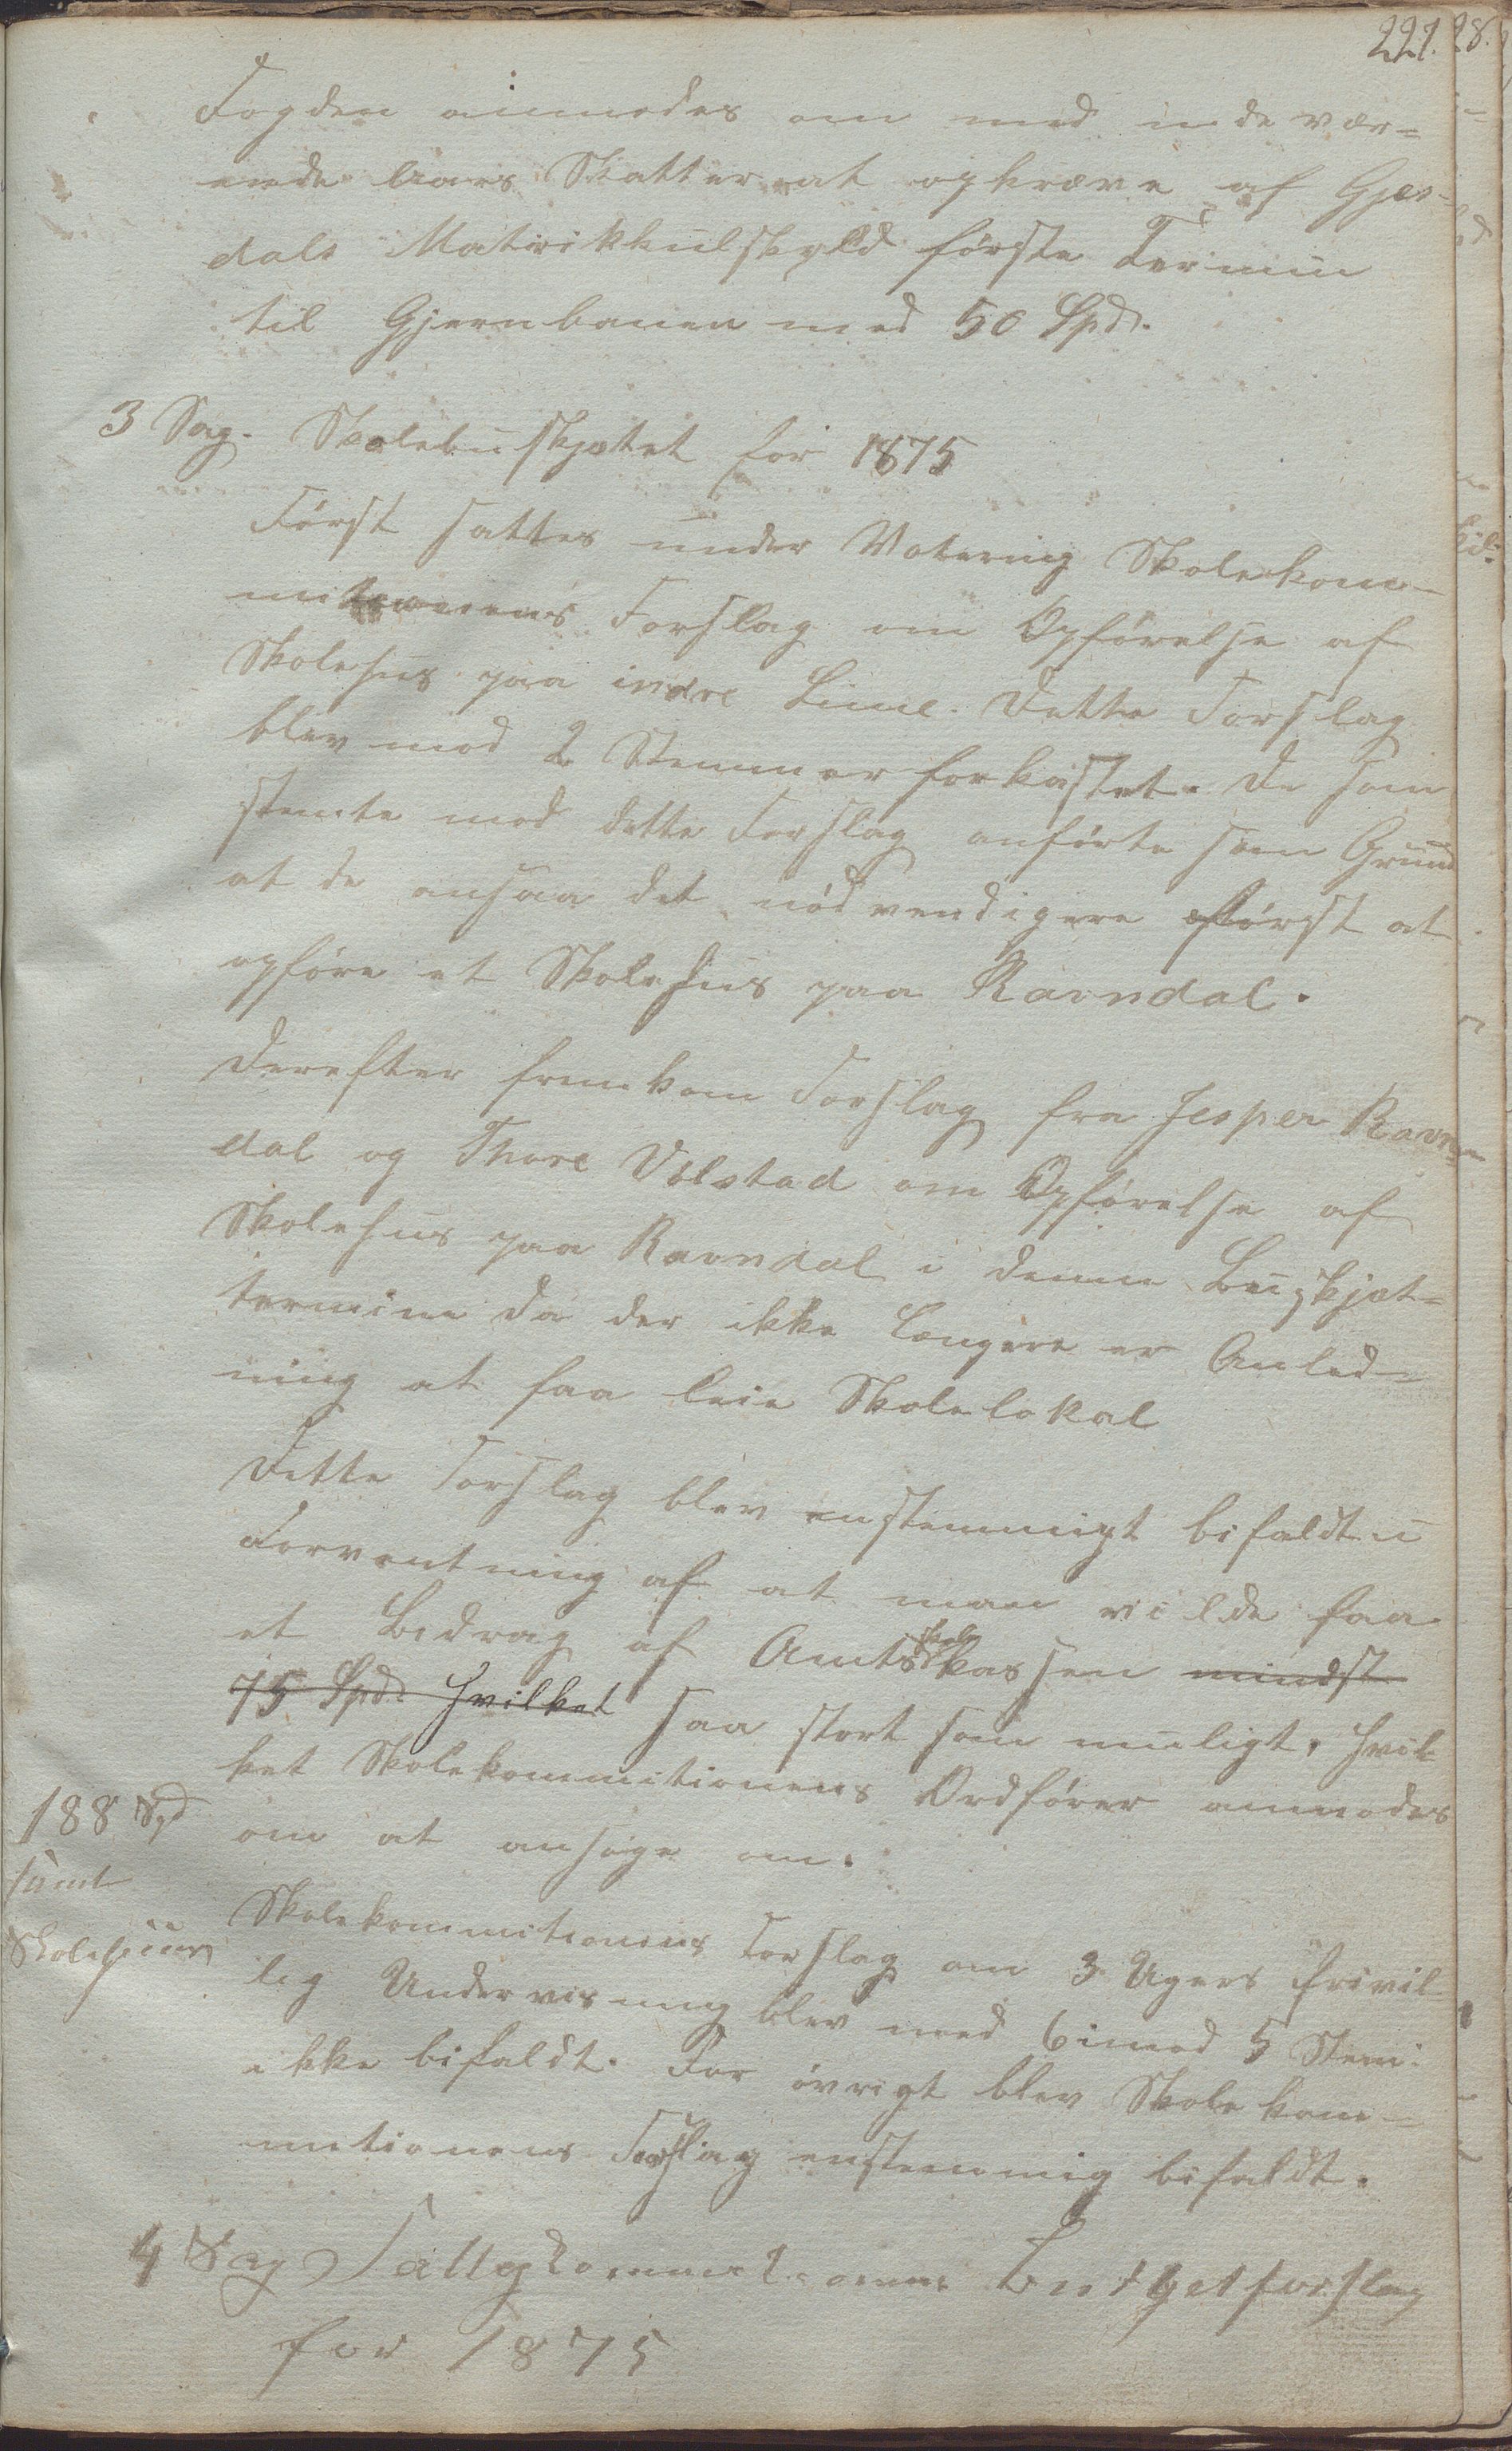 221.
Fogden anmodes om med inde vær-
ende Aars Skatter at opkræve af Gjes-
dals Matrikkulskyld første Termin
til Gjernbanen med 50 Spd.
3 Sag. Skolebuskjætet for 1875
Først sattes under Votering Skolekom-
mitionens Forslag om Opførelse af
Skolehus paa indre Lime. Dette Forslag
blev mod 2 Stemmer forkastet. De som
stemte mod dette Forslag anførte som Grund
at de ansaa det nødvendigere først at
opføre et Skolehus paa Ravndal.
Derefter fremkom Forslag fra Jesper Ravn-
dal og Thore Vølstad om Opførelse af
Skolehus paa Ravndal i denne Buskjæt-
termine da der ikke længere er Anled-
ning at faa leie Skolelokal
Dette Forslag blev enstemmigt bifaldt i
Forventning af at man vilde faa
et Bidrag af Amtsskolekassen mindst
75 Spd. hvilket saa stort som muligt, hvil-
ket Skolekommitionens Ordfører anmodes
om at ansøge om.
188 Spd
samt
Skolehuus
Skolekommitionens Forslag om 3 Ugers frivil-
lig Undervisning blev med 6 imod 5 Stem:
ikke bifaldt. For øvrigt blev Skolekom-
mitionens Forslag enstemmig bifaldt.
4 Sag Fattigkommitionens Butgetforslag
for 1875